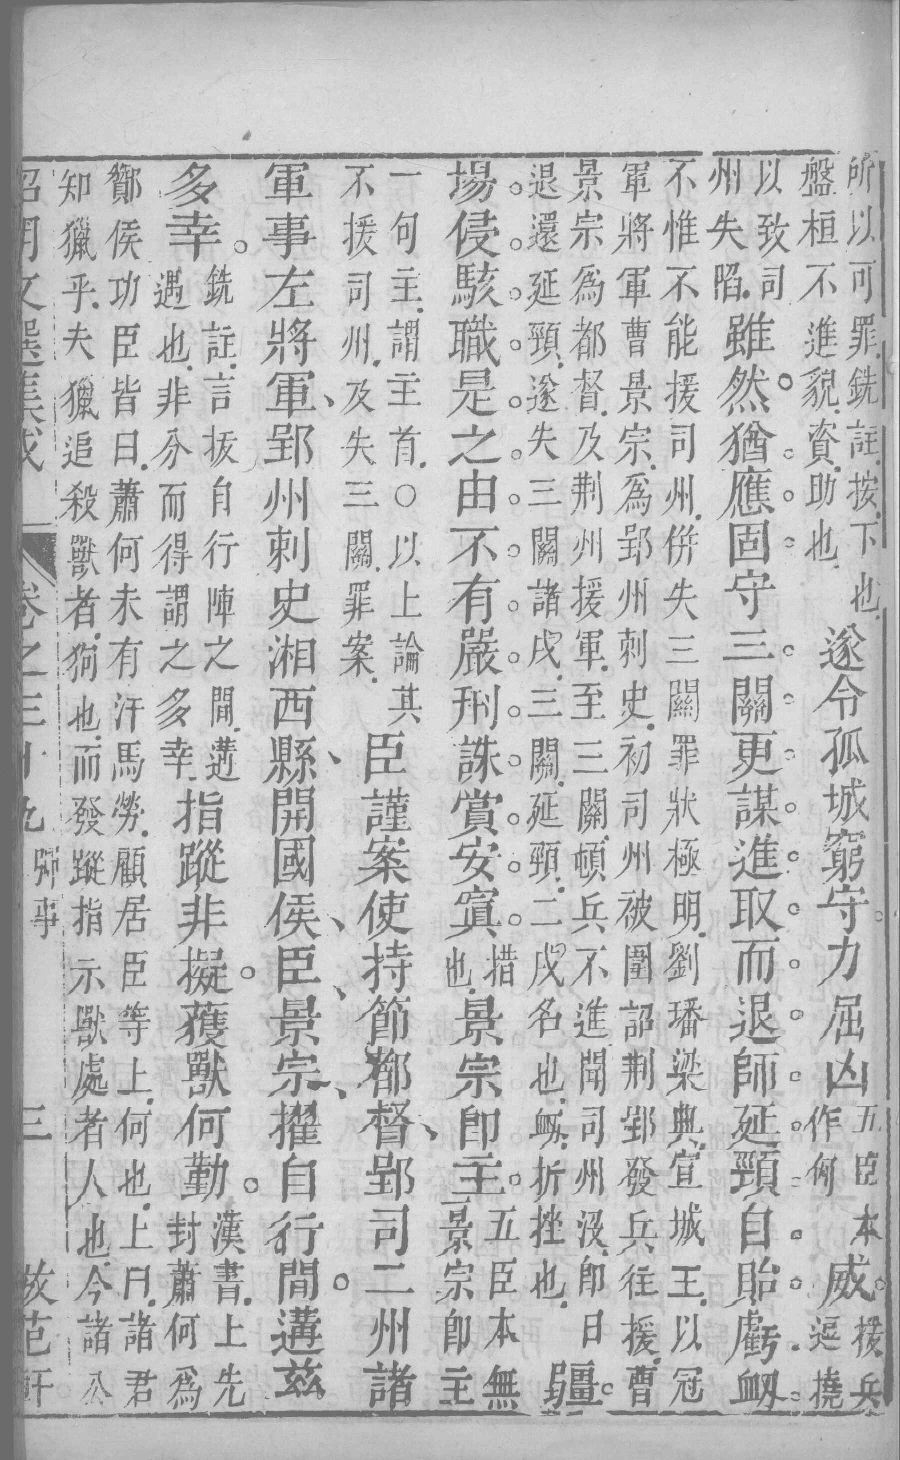 所以可罪銑註按下也
盤桓不進貌資助也
遂令孤城窮守力屈凶
五臣本
作何
威
援兵
逗撓
以致司
州失陷
雖然猶應固守三關更謀進取而退師延頸自貽虧衂
不惟不能援司州併失三關罪狀極明劉璠梁典宣城王以冠
軍將軍曹景宗為郢州刺史初司州被圍詔荆郢發兵往援曹
景宗為都督及荆州援軍至三關頓兵不進聞司州沒即日
退還延頸遂失三關諸戍三關延頸二戍名也衂折挫也
疆
場侵駭職是之由不有嚴刑誅賞安寘
措
也
景宗即主
五臣本無
景宗即主
一句主謂主首○以上論其
不援司州及失三關罪案
臣謹案使持節都督郢司二州諸
軍事左將軍郢州刺史湘西縣開國侯臣景宗擢自行間遘茲
多幸
銑註言拔自行陣之間遘
遇也非分而得謂之多幸
指蹤非擬獲獸何勤
漢書上先
封蕭何為
鄼侯功臣皆曰蕭何未有汗馬勞顧居臣等上何也上曰諸君
知獵乎夫獵追殺獸者狗也而發蹤指示獸處者人也今諸公
昭明文選集成 卷之三十九 彈事 三 倣范軒